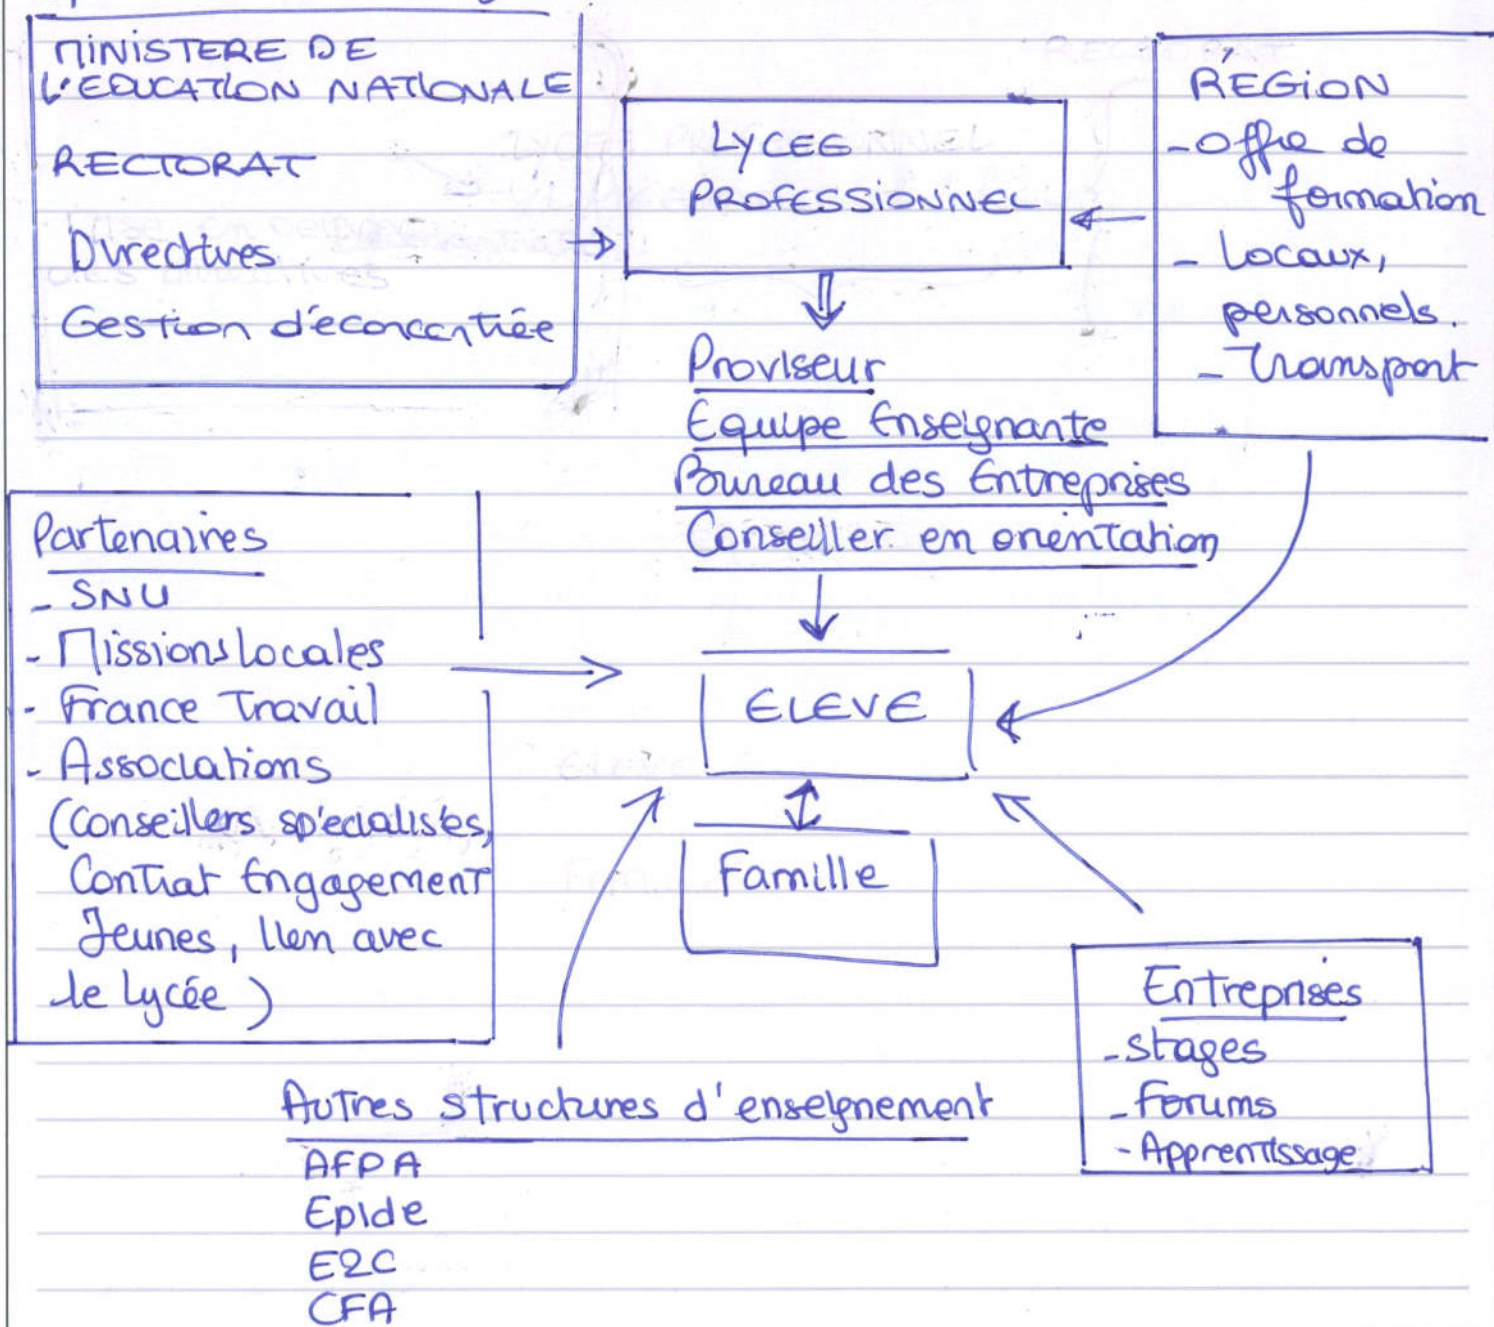 MINISTERE DE
L'EDUCATION NATIONALE
RECTORAT
Directives
Gestion déconcentrée
LYCEE
PROFESSIONNEL
RÉGION
- Offre de
formation
- Locaux,
personnels.
- Transport
Proviseur
Equipe Enseignante
Bureau des Entreprises
Conseiller en orientation
Partenaires
- SNU
- Missions locales
- France Travail
- Associations
(Conseillers spécialisés,
Contrat Engagement
Jeunes, lien avec
le lycée)
ELEVE
Famille
Entreprises
- stages
- Forums
- Apprentissage
Autres structures d'enseignement
AFPA
Epide
E2C
CFA